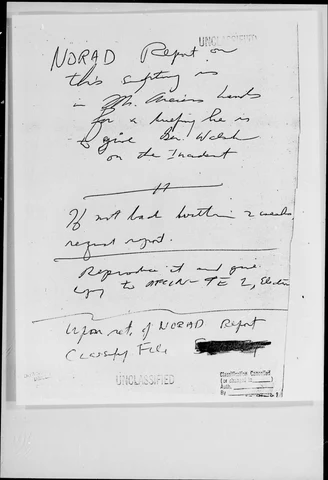 UNCLASSIFIED
NORAD Report on
this sighting is
in Mr. hands
for a briefing he is
to give Gen. Welsh
on the Incident
If not back within 2 weeks
request report.
Reproduce it and give
copy to
Upon ret. of NORAD Report
Classify File
UNCLASSIFIED
Classification Cancelled
(or changed to
Auth.
By